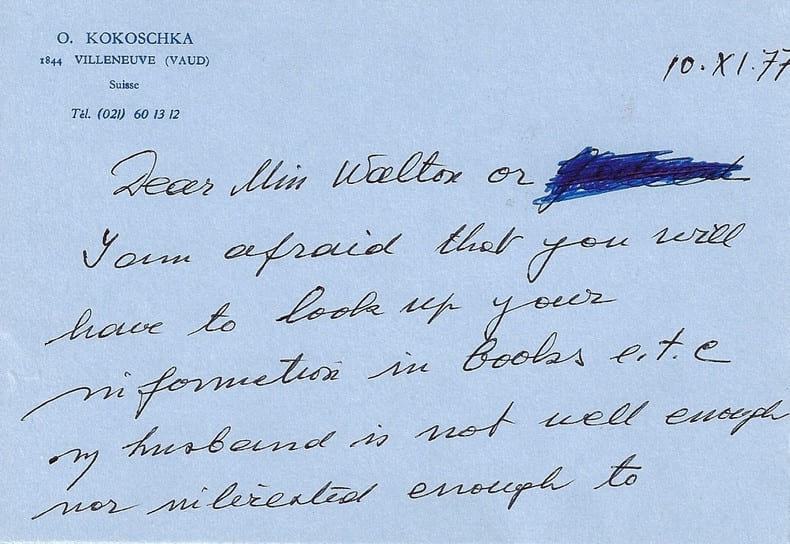 O. KOKOSCHKA
1844 VILLENEUVE (VAUD)
Suisse
Tél. (021) 60 13 12
10.XI.77
Dear Miss Walton or
I am afraid that you will
have to look up your
information in books e.t.c
my husband is not well enough
nor interested enough to